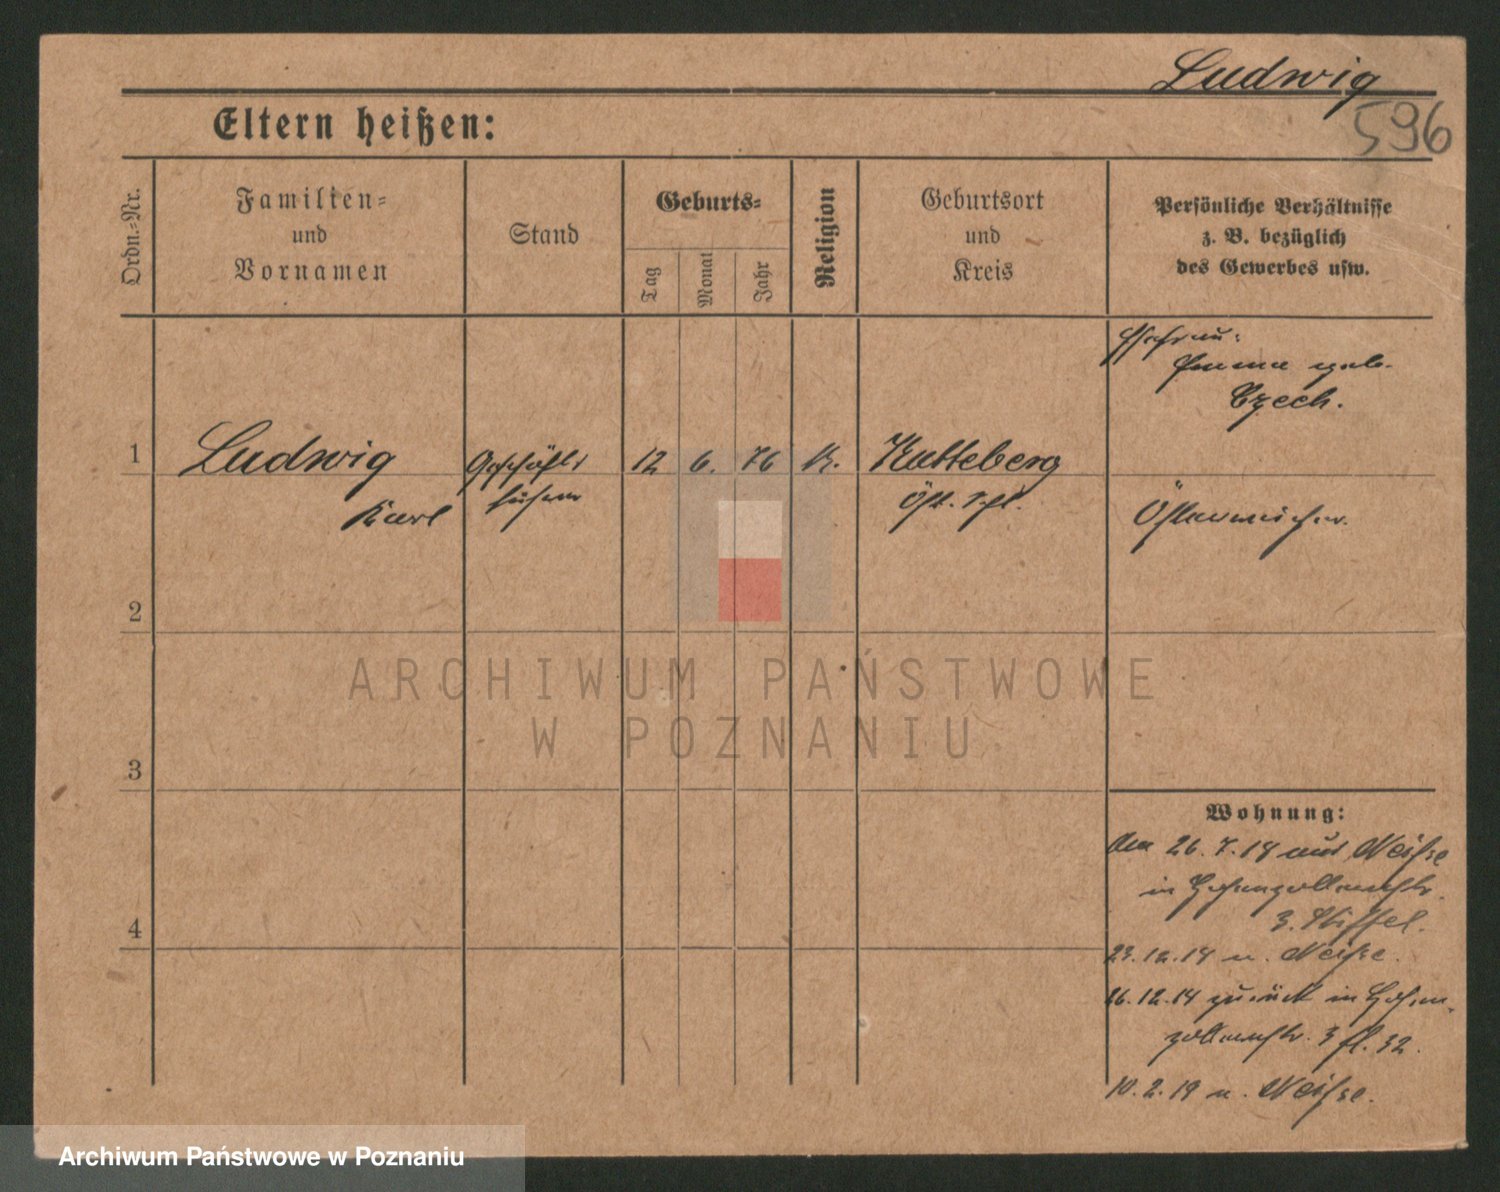 Ludwig
596
Eltern heißen:
Ordn.-Nr.
Familien-
und
Vornamen
Stand
Geburts-
Tag
Monat
Jahr
Religion
Geburtsort
und
Kreis
Persönliche Verhältnisse
z. B. bezüglich
des Gewerbes usw.
Ehefrau:
Emma geb.
Czech.
1
Ludwig
Karl
Geschäfts
führer
12
6.
76
K.
Kutteberg
Öst. Schl.
Österreicher.
2
3
4
Wohnung:
Am 26.7.14 aus Neiße
in Hohenzollernstr.
3.
23.12.14 n. Neiße.
26.12.14 zurück in Hohen-
zollernstr. 3 32.
10.2.19 n. Neiße.
ARCHIWUM PAŃSTWOWE
W POZNANIU
Archiwum Państwowe w Poznaniu